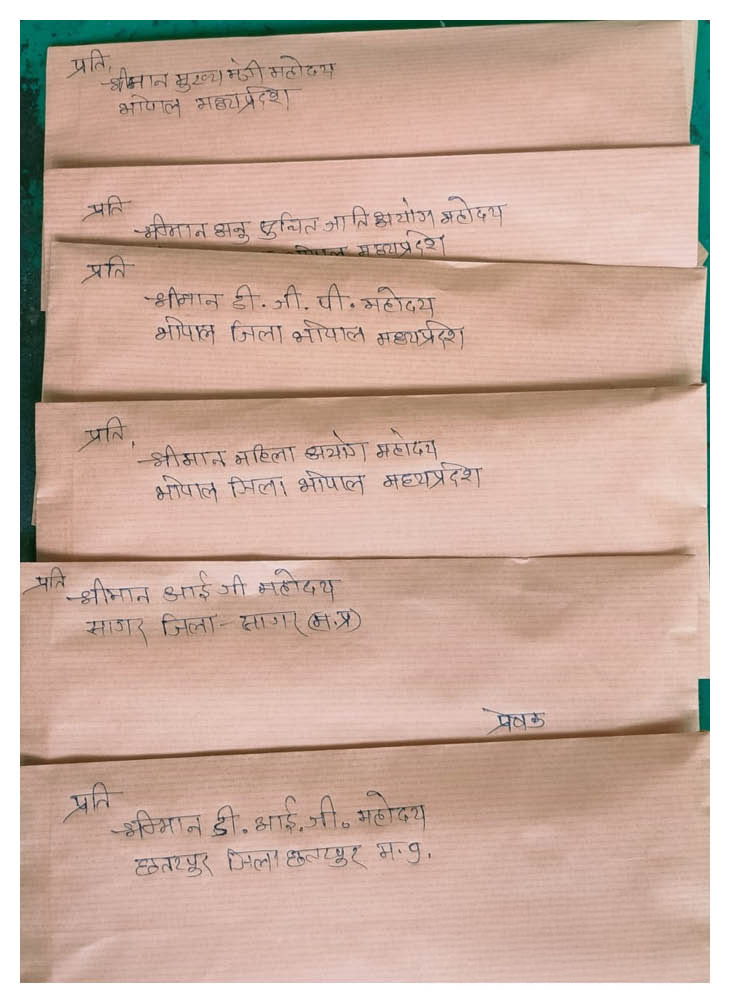 प्रति,
श्रीमान मुख्य मंत्री महोदय
भोपाल मध्यप्रदेश
प्रति
श्रीमान अनु सुचित जाति अयोग महोदय
भोपाल मध्यप्रदेश
प्रति
श्रीमान डी. जी. पी. महोदय
भोपाल जिला भोपाल मध्यप्रदेश
प्रति,
श्रीमान महिला अयोग महोदय
भोपाल जिला भोपाल मध्यप्रदेश
प्रति
श्रीमान आई जी महोदय
सागर जिला - सागर (म.प्र)
प्रेषक
प्रति
श्रीमान डी. आई. जी. महोदय
छतरपुर जिला छतरपुर म.प्र.